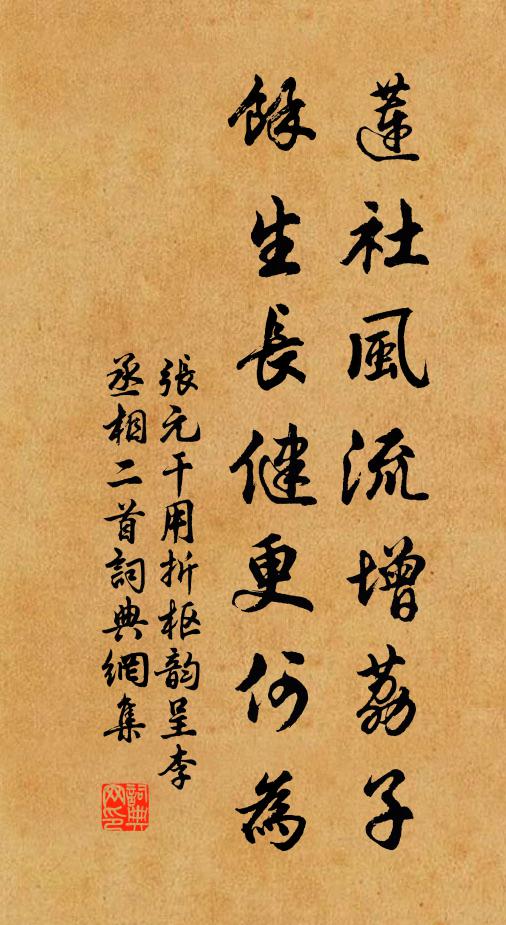 蓮社風流增荔子
餘生長健更何為
張元干用折枢韵呈李
丞相二首詞典網集
詞典網印